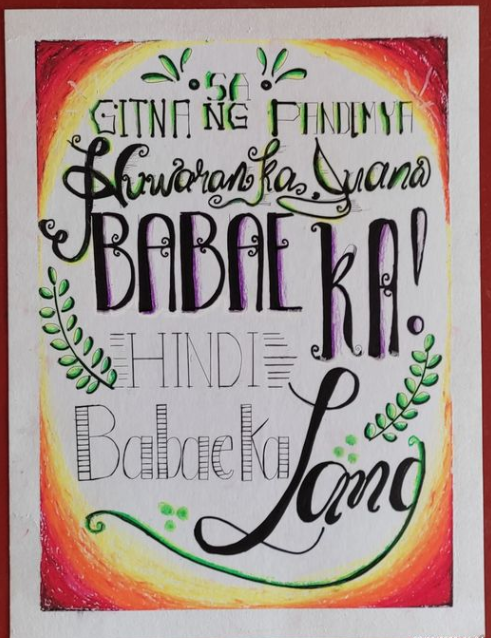 SA
GITNA NG PANDEMYA
Huwaran ka, Juana
BABAE KA!
HINDI
Babae ka
Lang